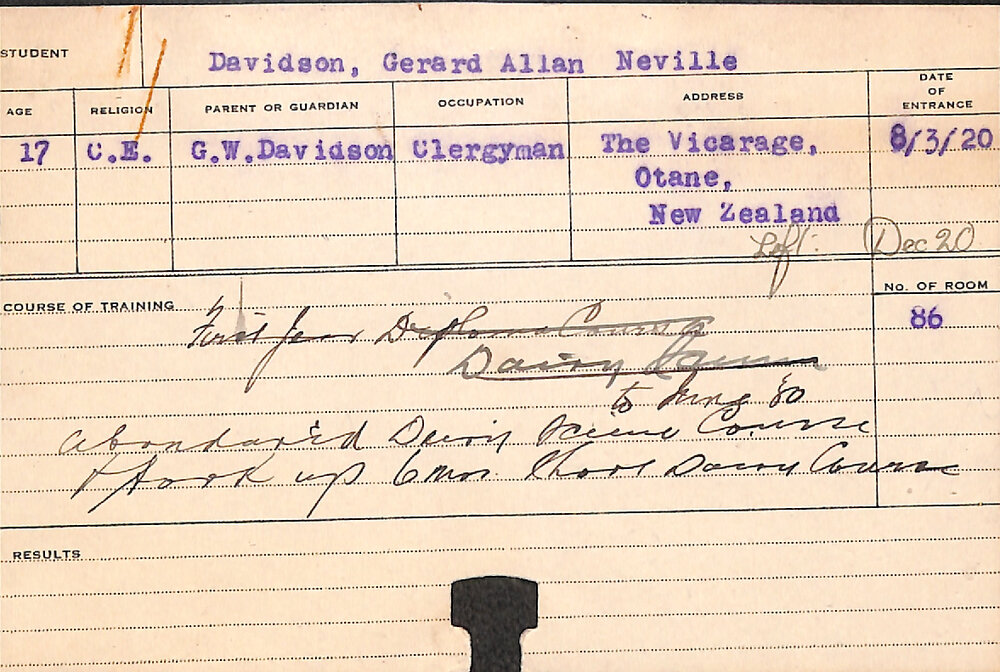 STUDENT
Davidson, Gerard Allan Neville
AGE RELIGION PARENT OR GUARDIAN OCCUPATION ADDRESS DATE OF ENTRANCE
17 C.E. G.W.Davidson Clergyman The Vicarage, 8/3/20
Otane,
New Zealand
Left: Dec 20
No. OF ROOM
COURSE OF TRAINING
86
First Year Diploma Course
Dairy
to June 20
abandoned Dairy Science Course
& took up 6 mos. Short Dairy Course
RESULTS